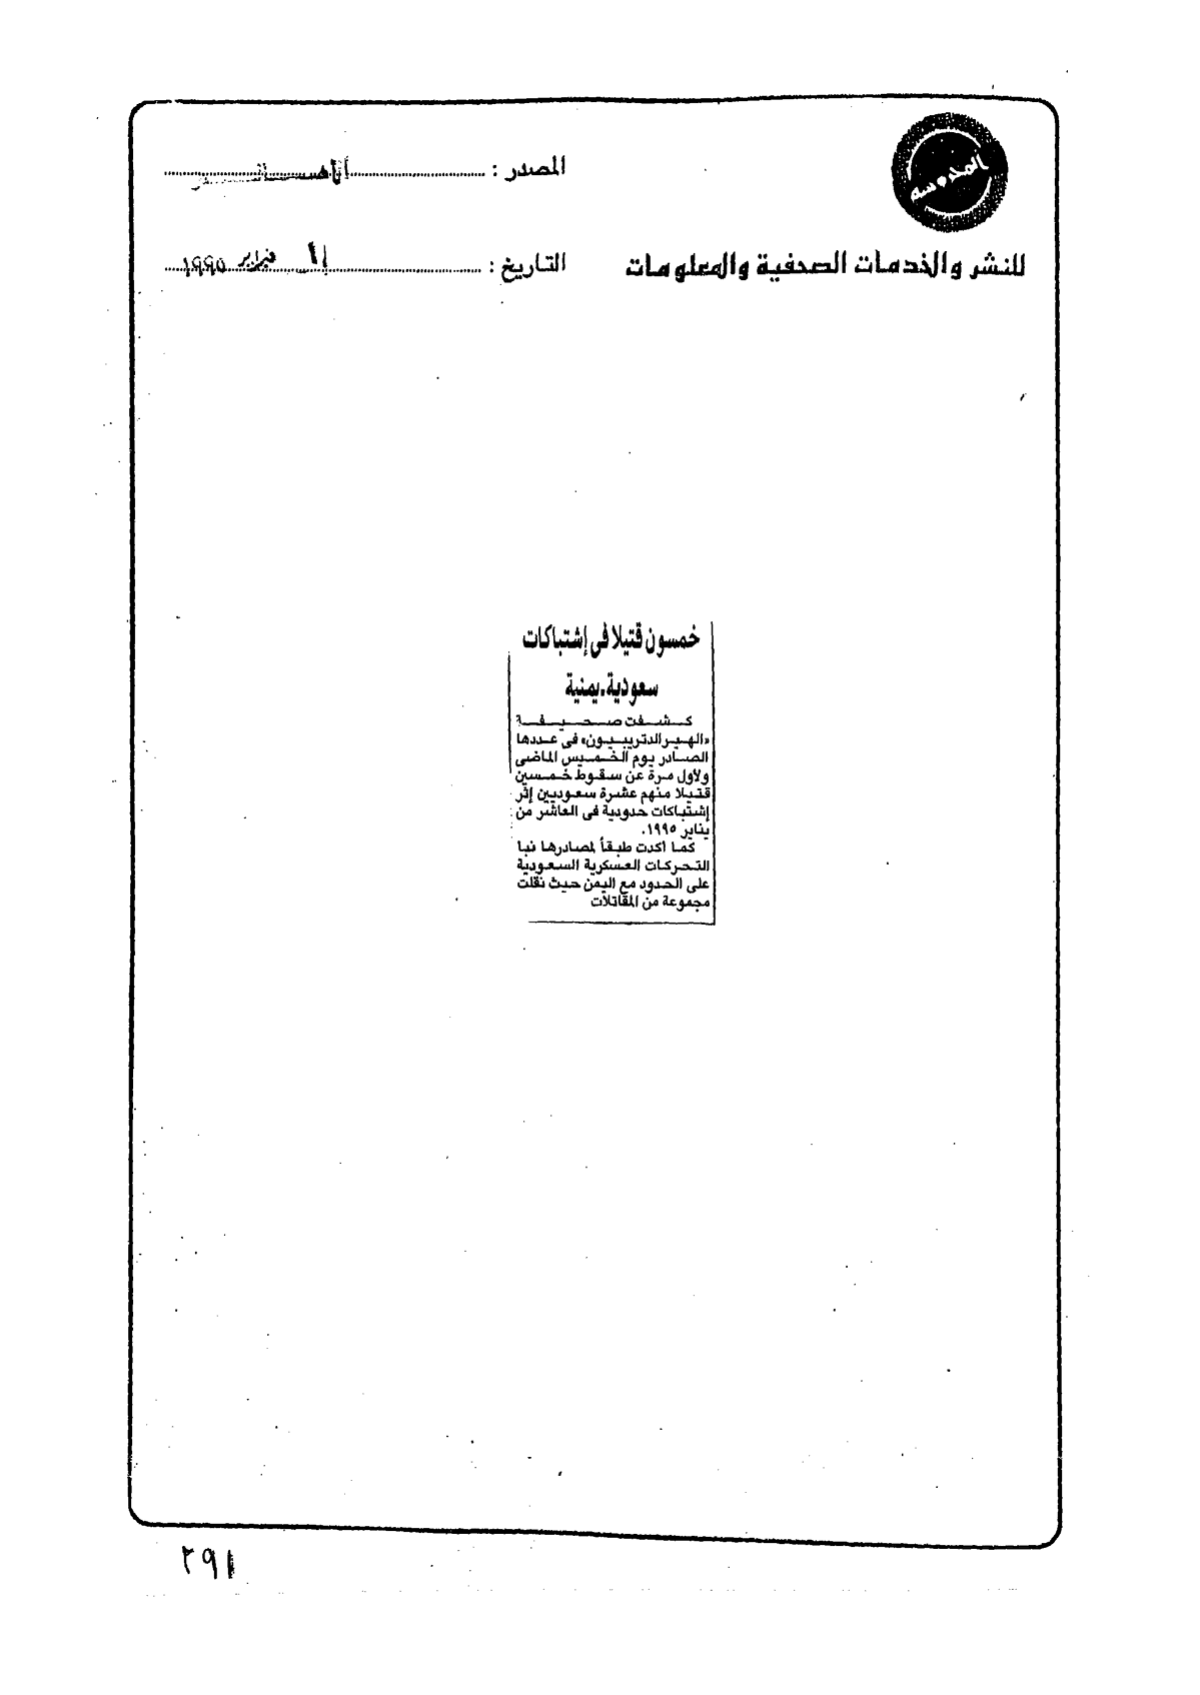 المحروسة
المصدر :
للنشر والخدمات الصحفية والمعلومات
التاريخ : فبراير ١٩٩٥
خمسون قتيلا فى إشتباكات
سعودية.يمنية
كشفت صحيفة
«الهيرالدتريبيون» فى عددها
الصادر يوم الخميس الماضى
ولأول مرة عن سقوط خمسين
قتيلا منهم عشرة سعوديين إثر
إشتباكات حدودية فى العاشر من
يناير ١٩٩٥.
كما اكدت طبقاً لمصادرها نبا
التحركات العسكرية السعودية
على الحدود مع اليمن حيث نقلت
مجموعة من المقاتلات